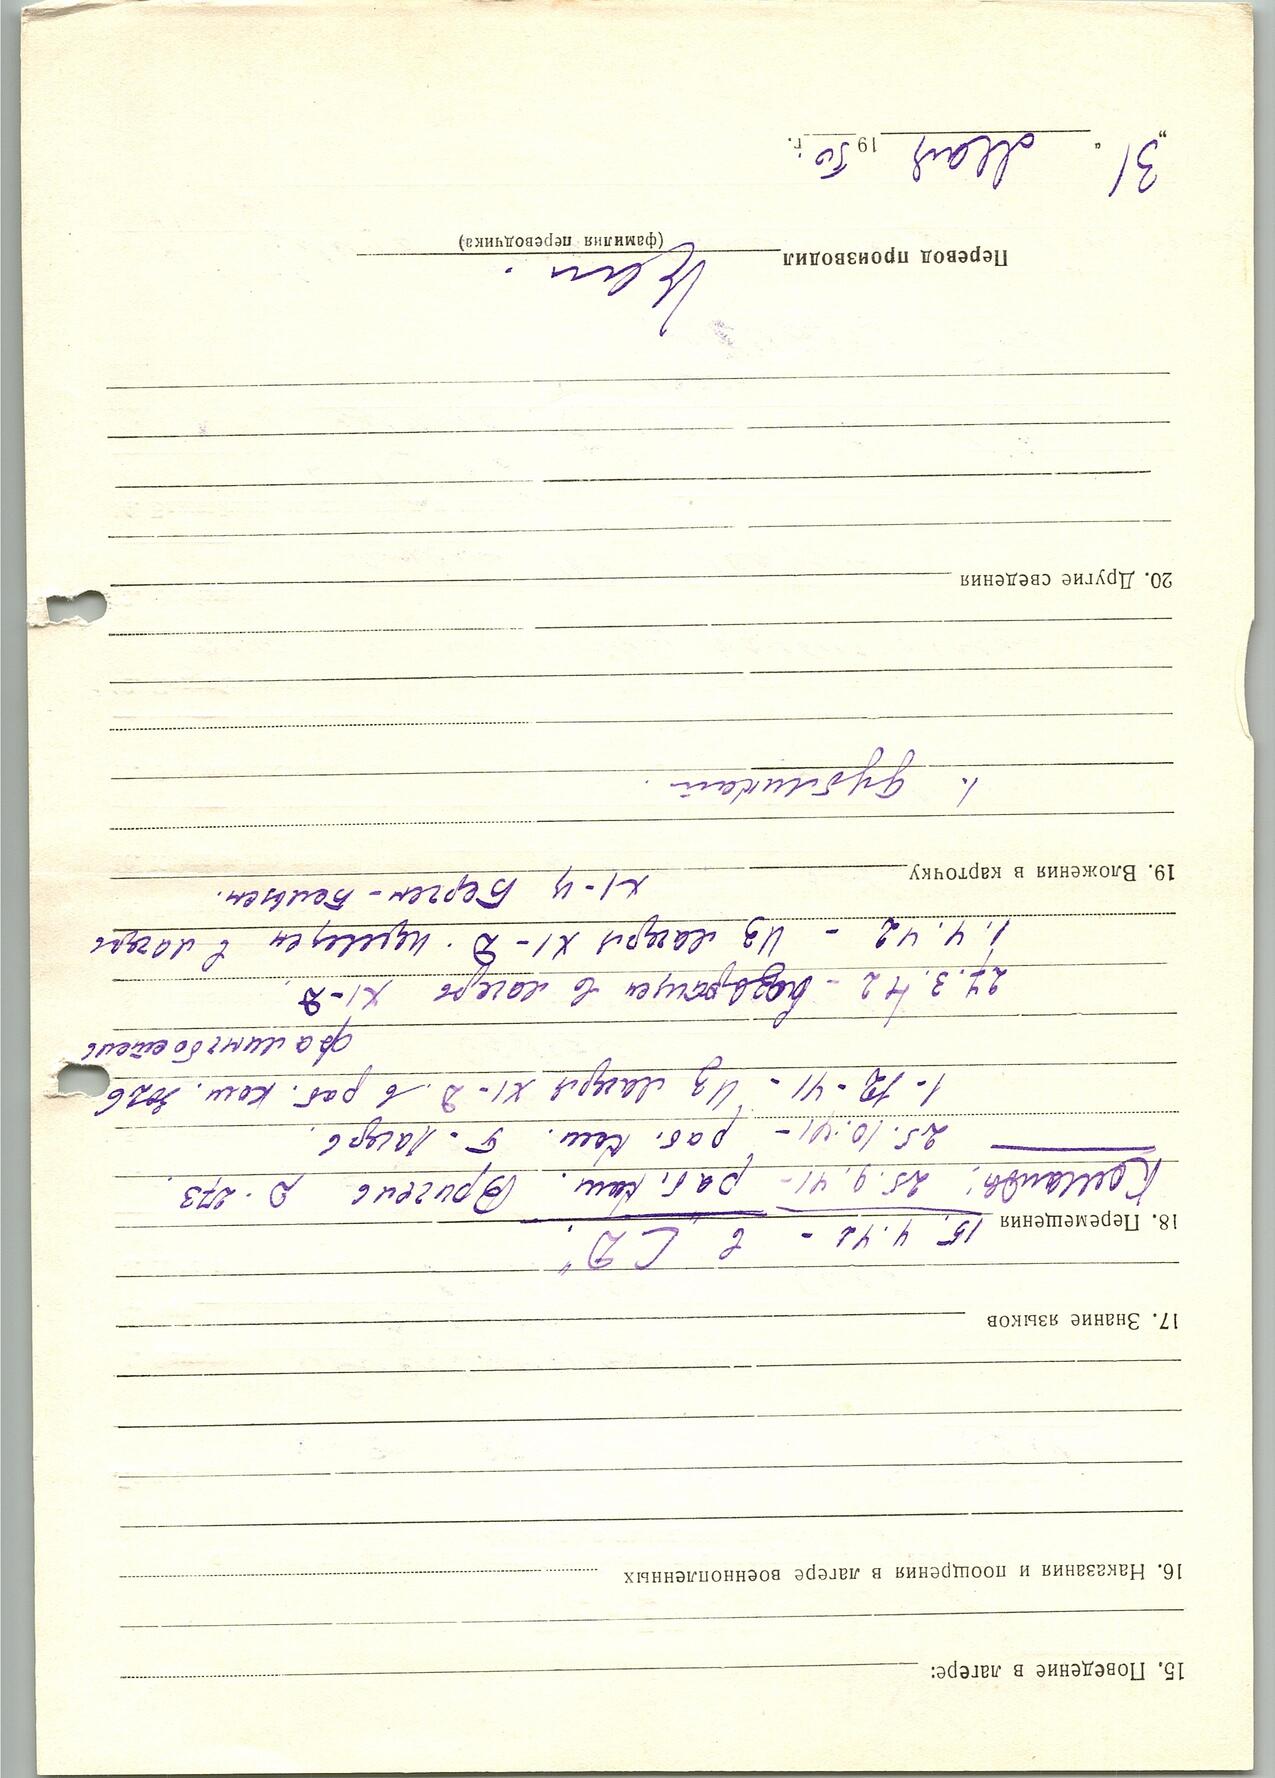 15. Поведение в лагере:
16. Наказания и поощрения в лагере военнопленных
17. Знание языков
15.4.42 - в СД".
18. Перемещения
Команды: 25.9.41 - раб. ком. Эрицен D. 273.
25.10.41 - раб. ком. Б-лагерь.
1-12-41 - Из лагеря XI-D. в раб. ком.
фалингбостель
27.3.42 - возвращен в лагерь XI-D.
1.4.42 - Из лагеря XI-D. переведен в лагерь
XI-Ц Берген-Бельзен.
19. Вложения в карточку
1. Дубликат.
20. Другие сведения
Перевод производил
(фамилия переводчика)
"31" мая 1950 г.